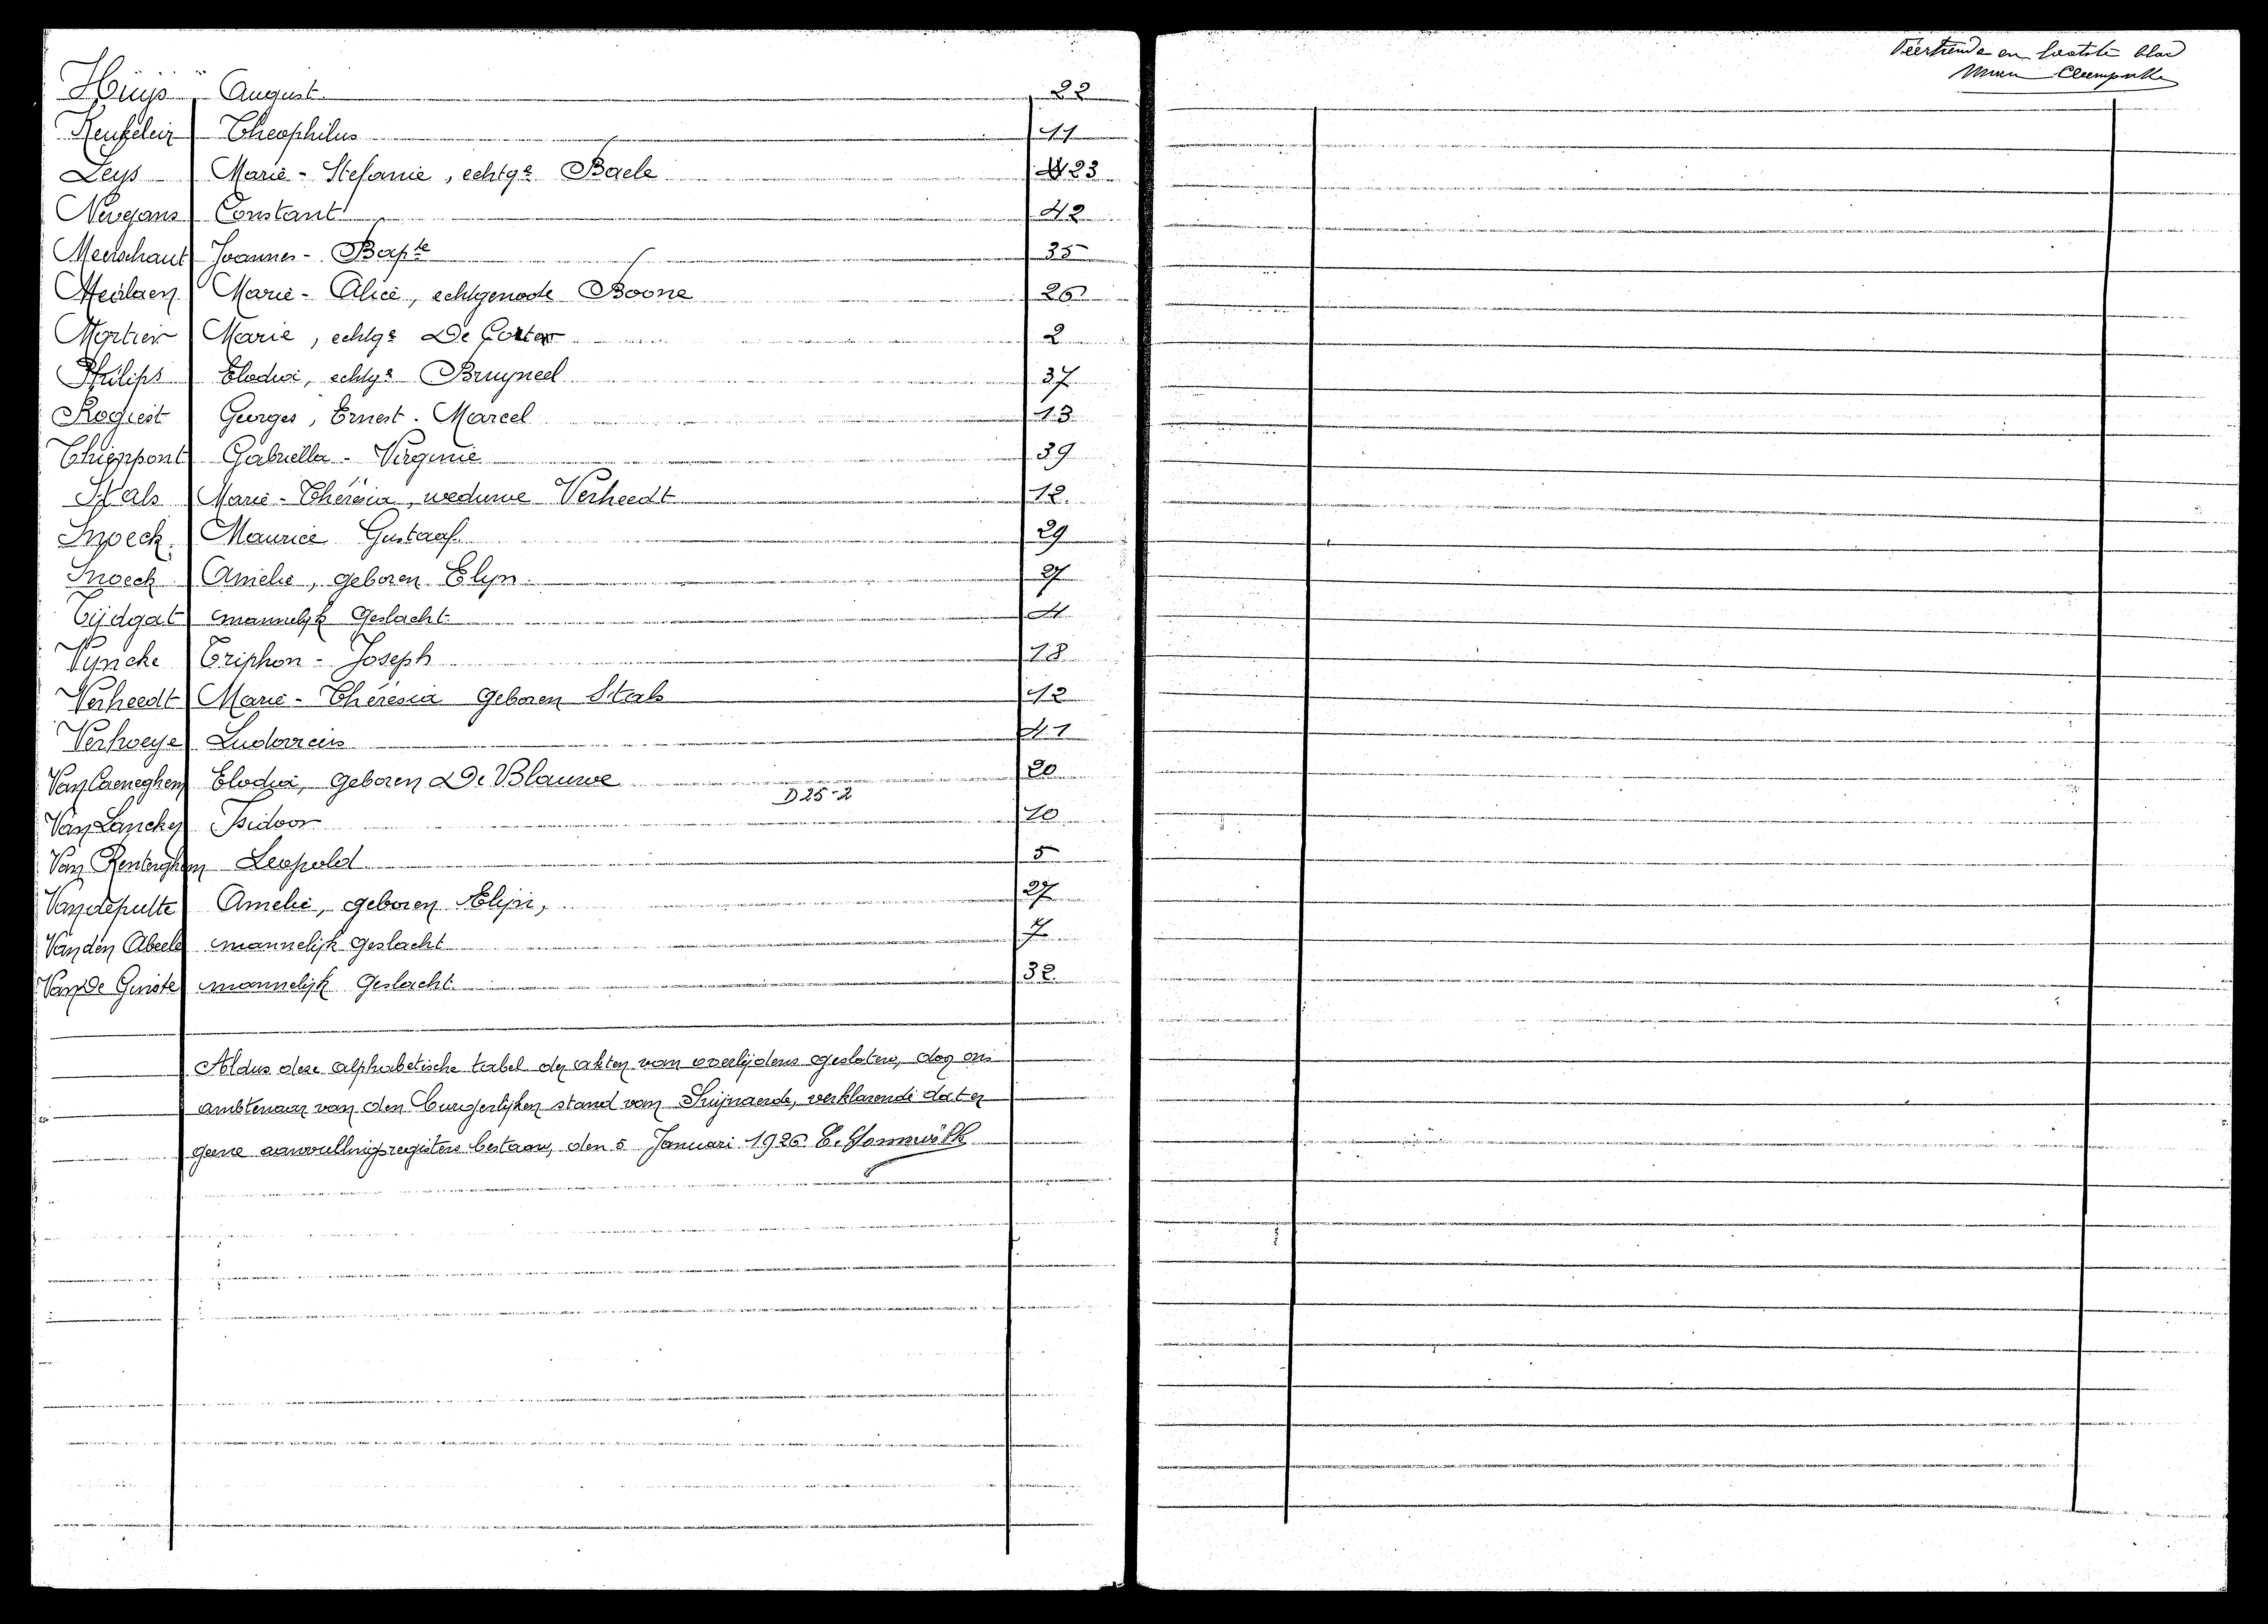 Huijs August 22
Keukeleir Theophilus 11
Leys Marie - Stefanie, echtge Baele 23
Nevejans Constant 42
Meerschaut Joannes - Bapte 35
Meirlaen Marie - Alice, echtgenoote Boone 26
Mortier Marie, echtge De Corter 2
Philips Elodia, echtge Bruyneel 37
Rogiest Georges, Ernest - Marcel 13
Thienpont Gabriella - Virginie 39
Stals Marie - Thérèsia, weduwe Verheedt 12
Snoeck Maurice Gustaaf 29
Snoeck Amelie, geboren Elyn 27
Tijdgat mannelijk geslacht 4
Vyncke Triphon - Joseph 18
Verheedt Marie - Thérèsia geboren Stals 12
Verhoeye Ludovicus 41
Van Caeneghem Elodia, geboren De Blauwe 20
D 25-2
Van Lancker Isidoor 10
Van Renterghem Leopold 5
Vandeputte Amelie, geboren Elijn, 27
Van den Abeele mannelijk geslacht 7
Van De Ginste mannelijk geslacht 32
Aldus deze alphabetische tabel der akten van overlijdens gesloten, door ons
ambtenaar van den burgerlijken stand van Swijnaerde, verklarende dat er
geene aanvullingsregisters bestaan, den 5 Januari 1926
Veertiende en laatste blad